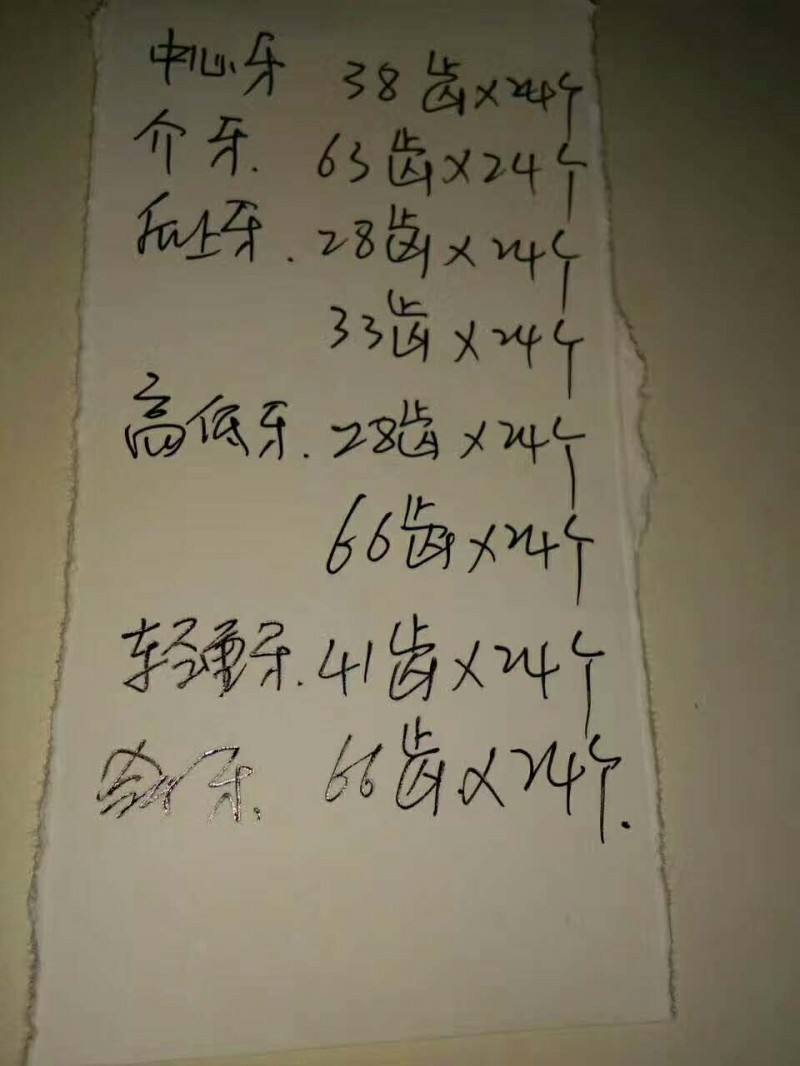 中心牙 38齿×24个
介牙. 63齿×24个
上牙. 28齿×24个
33齿×24个
高低牙. 28齿×24个
66齿×24个
轻重牙. 41齿×24个
牙. 66齿×24个.